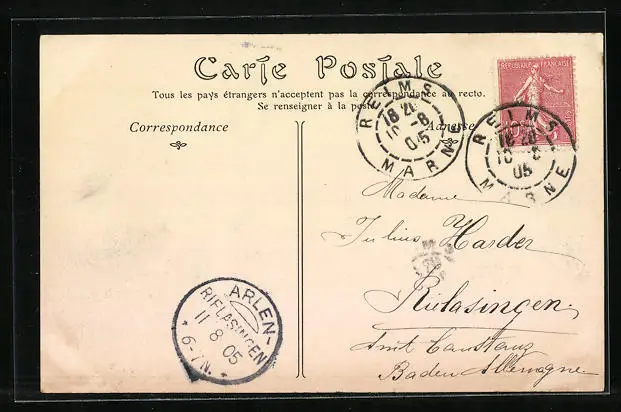 Carte Postale
Tous les pays étrangers n'acceptent pas la correspondance au recto.
Se renseigner à la poste
Correspondance
Adresse
REPUBLIQUE FRANÇAISE
REIMS
18 20
10 -8
05
MARNE
REIMS
18 20
10 -8
05
MARNE
Madame
Julius Harder
Rielasingen
Amt Constanz
Baden Allemagne
ARLEN-
RIELASINGEN
11 8 05
6-7 N.